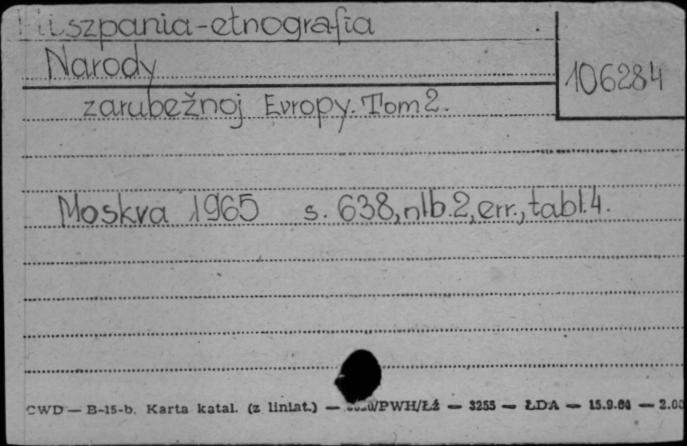 Hiszpania-etnografia
Narody
106284
zarubežnoj Evropy. Tom 2.
Moskva 1965 s. 638, nlb. 2, err., tabl. 4.
CWD — B-15-b. Karta katal. (z liniat.) — /PWH/Łź — 3255 — ŁDA — 15.9.64 — 2.00